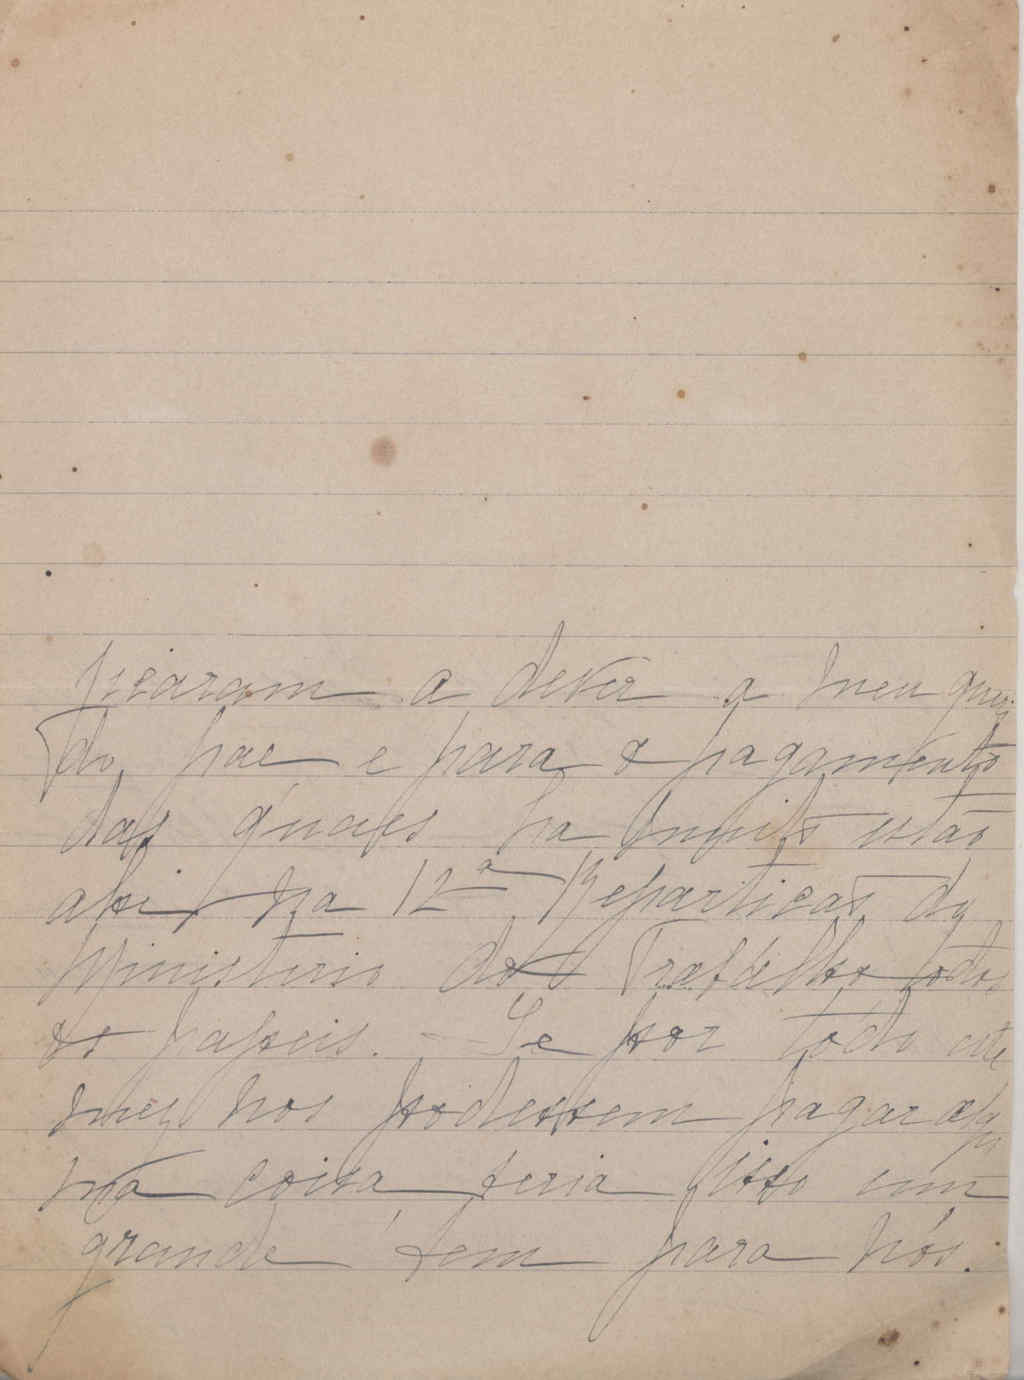 ficaram a dever a meu queri
do pae e para o pagamento
das quaes ha muito estão
ahi na 12ª Repartição do
Ministerio do Trabalho todos
os papeis. - Se por todo este
mez nos podessem pagar algu
ma coisa seria isso um
grande bem para nós.